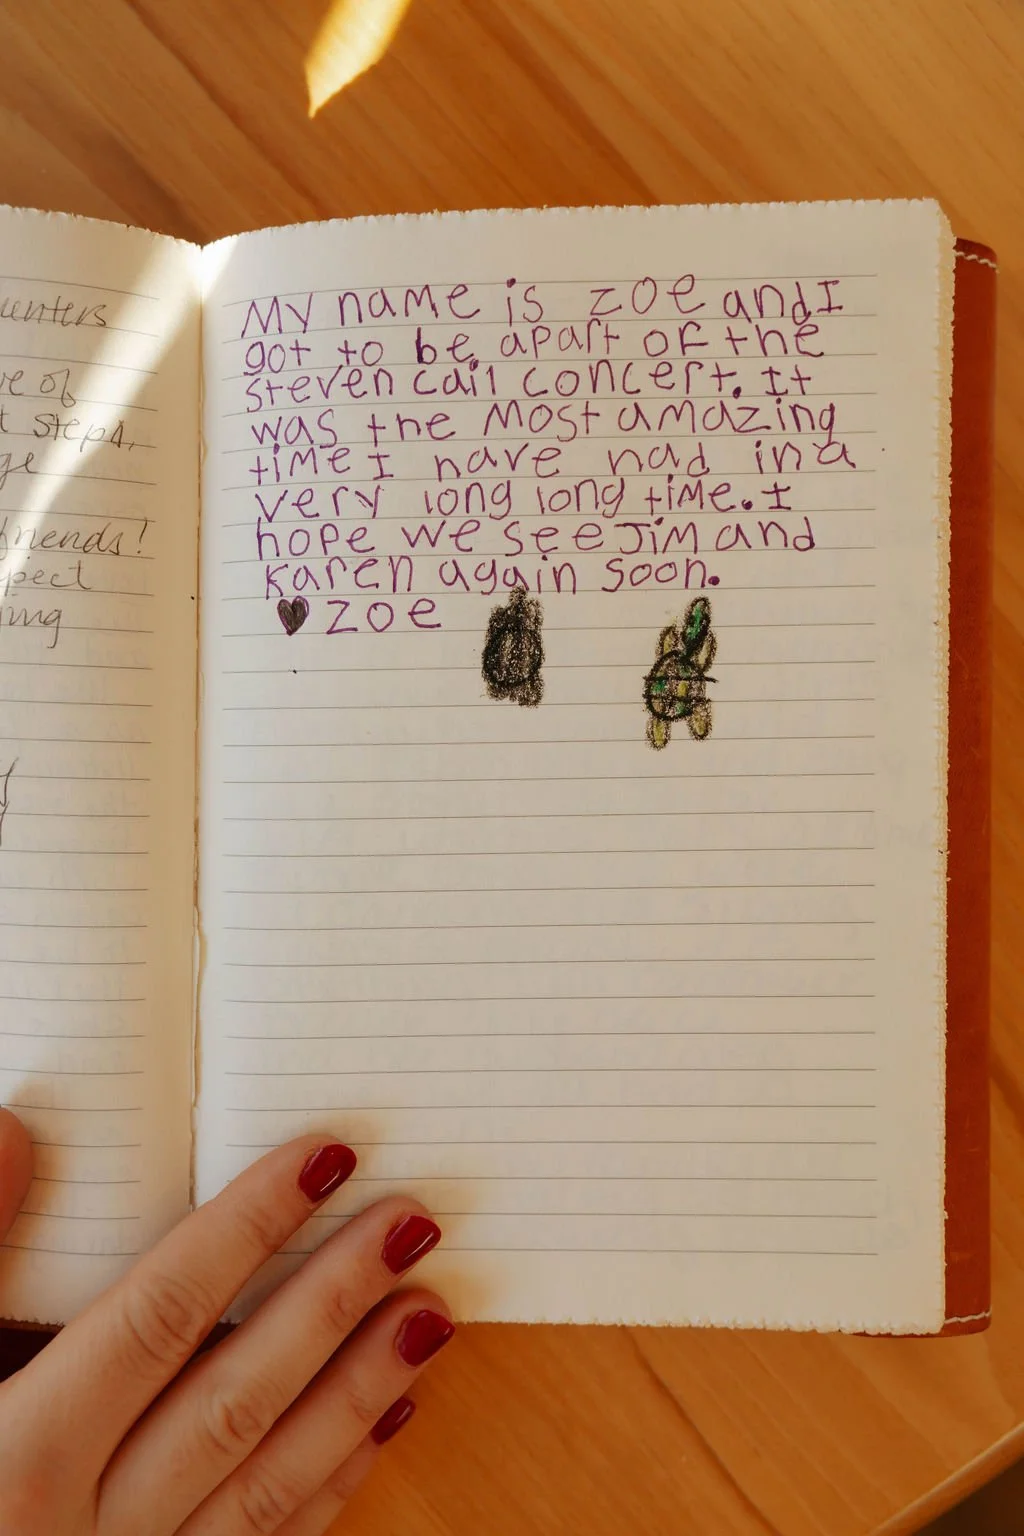 unters
ve of
t steps,
ge
friends!
pect
ing
My name is zoe and I
got to be apart of the
steven cail concert. It
was the most amazing
time I have had in a
very long long time. I
hope we see Jim and
Karen again soon.
♥ zoe